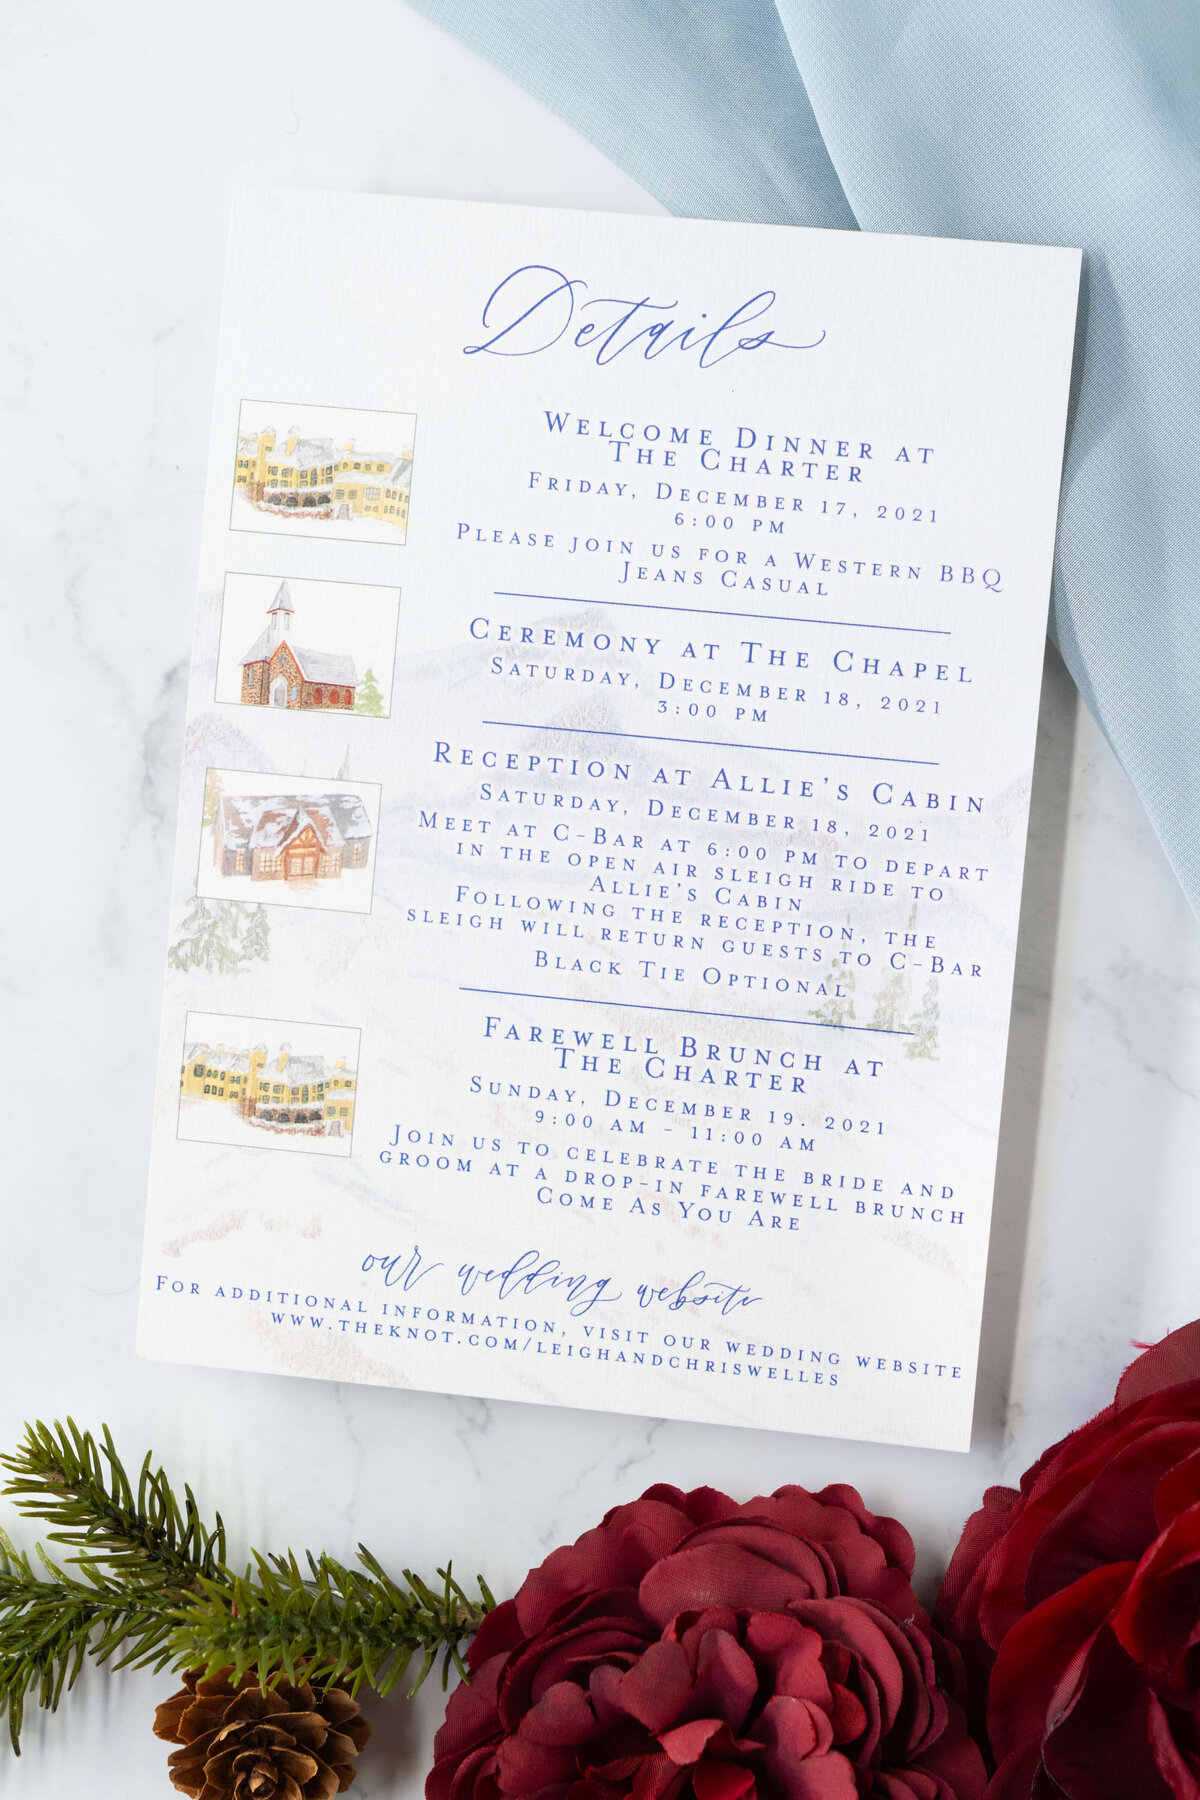 Details
Welcome Dinner at
The Charter
Friday, December 17, 2021
6:00 pm
Please join us for a Western BBQ
Jeans Casual
Ceremony at The Chapel
Saturday, December 18, 2021
3:00 pm
Reception at Allie's Cabin
Saturday, December 18, 2021
Meet at C-Bar at 6:00 pm to depart
in the open air sleigh ride to
Allie's Cabin
Following the reception, the
sleigh will return guests to C-Bar
Black Tie Optional
Farewell Brunch at
The Charter
Sunday, December 19. 2021
9:00 am - 11:00 am
Join us to celebrate the bride and
groom at a drop-in farewell brunch
Come As You Are
our wedding website
For additional information, visit our wedding website
www.theknot.com/leighandchriswelles